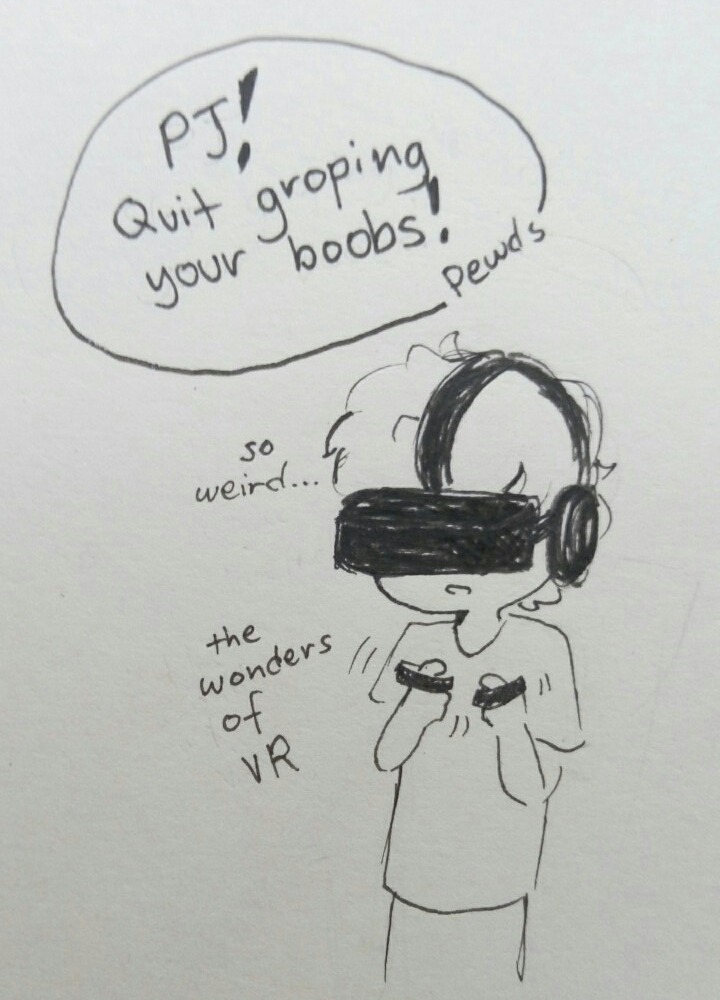 PJ!
Quit groping
your boobs!
Pewds
so
weird...
the
wonders
of
VR